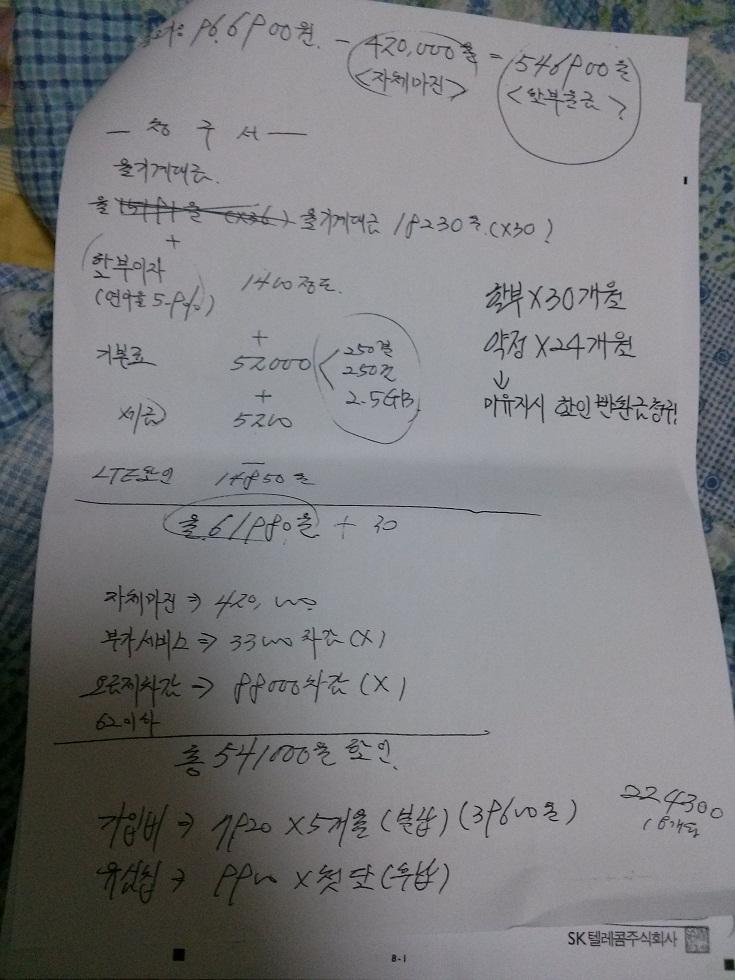 966900원 - 420,000원 = 546900원
<자체마진> <할부원금>
- 청구서 -
월기계대금
월 월기계대금 18230원 (X30)
+
할부이자 1400정도.
(연이율 5.9%)
+
기본료 52000 < 250분
250건
2.5GB
+
세금 5200
-
LTE할인 14850원
월 61980원 + 30
할부 X 30개월
약정 X 24개월
↓
미유지시 할인반환금청구
자체마진 ⇒ 420,000
부가서비스 ⇒ 33000 차감 (X)
요금제차감 ⇒ 88000차감 (X)
62이하
총 541000원 할인.
가입비 ⇒ 7920 X 5개월 (분납) (39600원)
유심칩 ⇒ 9900 X 첫달 (후납)
224300
16개월
SK텔레콤주식회사
B-1